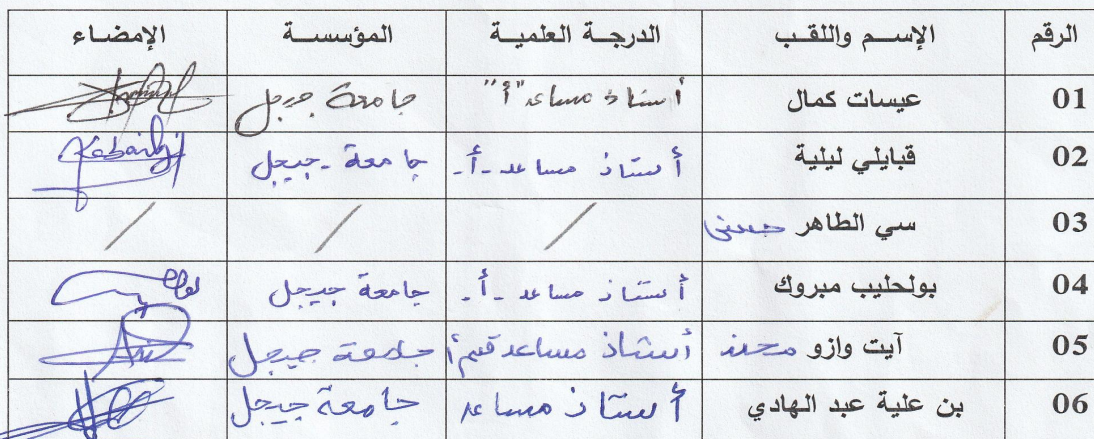 الرقم الإسـم واللقـب الدرجـة العلميـة المؤسسـة الإمضـاء
01 عيسات كمال أستاذ مساعد "أ" جامعة جيجل
02 قبايلي ليلية أستاذ مساعد -أ- جامعة - جيجل
03 سي الطاهر / / /
04 بولحليب مبروك أستاذ مساعد -أ- جامعة جيجل
05 آيت وازو محند أستاذ مساعد قسم أ جامعة جيجل
06 بن علية عبد الهادي أستاذ مساعد جامعة جيجل